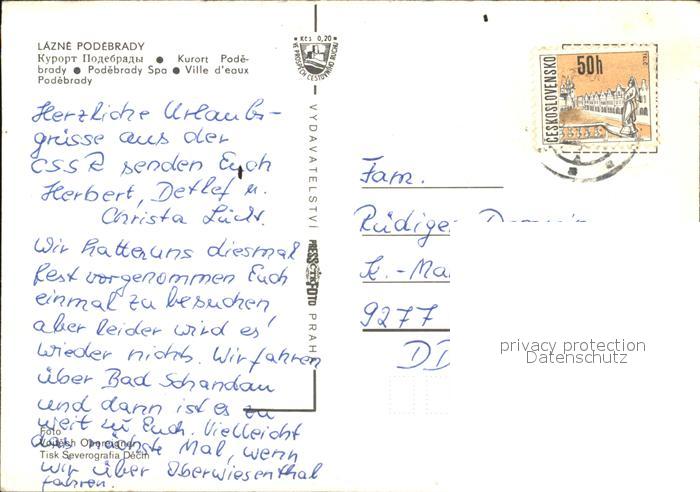 LÁZNĚ PODĚBRADY
Курорт Подебрады ● Kurort Podě-
brady ● Poděbrady Spa ● Ville d'eaux
Poděbrady
Herzliche Urlaubs-
grüsse aus der
CSSR senden Euch
Herbert, Detlef u.
Christa
Wir hatten uns diesmal
fest vorgenommen Euch
einmal zu besuchen,
aber leider wird es
wieder nichts. Wir fahren
über Bad Schandau
und dann ist es zu
weit zu Euch. Vielleicht
das nächste Mal, wenn
wir über Oberwiesenthal
fahren.
Foto
Tisk Severografia Děčín
Kčs 0,20
VE PROSPĚCH CESTOVNÍHO RUCHU
VYDAVATELSTVÍ
PRESSFOTO
PRAHA
ČESKOSLOVENSKO
50h
Fam.
Rüdiger
K.-Ma
9277
DD
privacy protection
Datenschutz